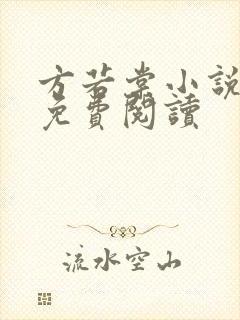 方若棠小說
免費閱讀
流水空山